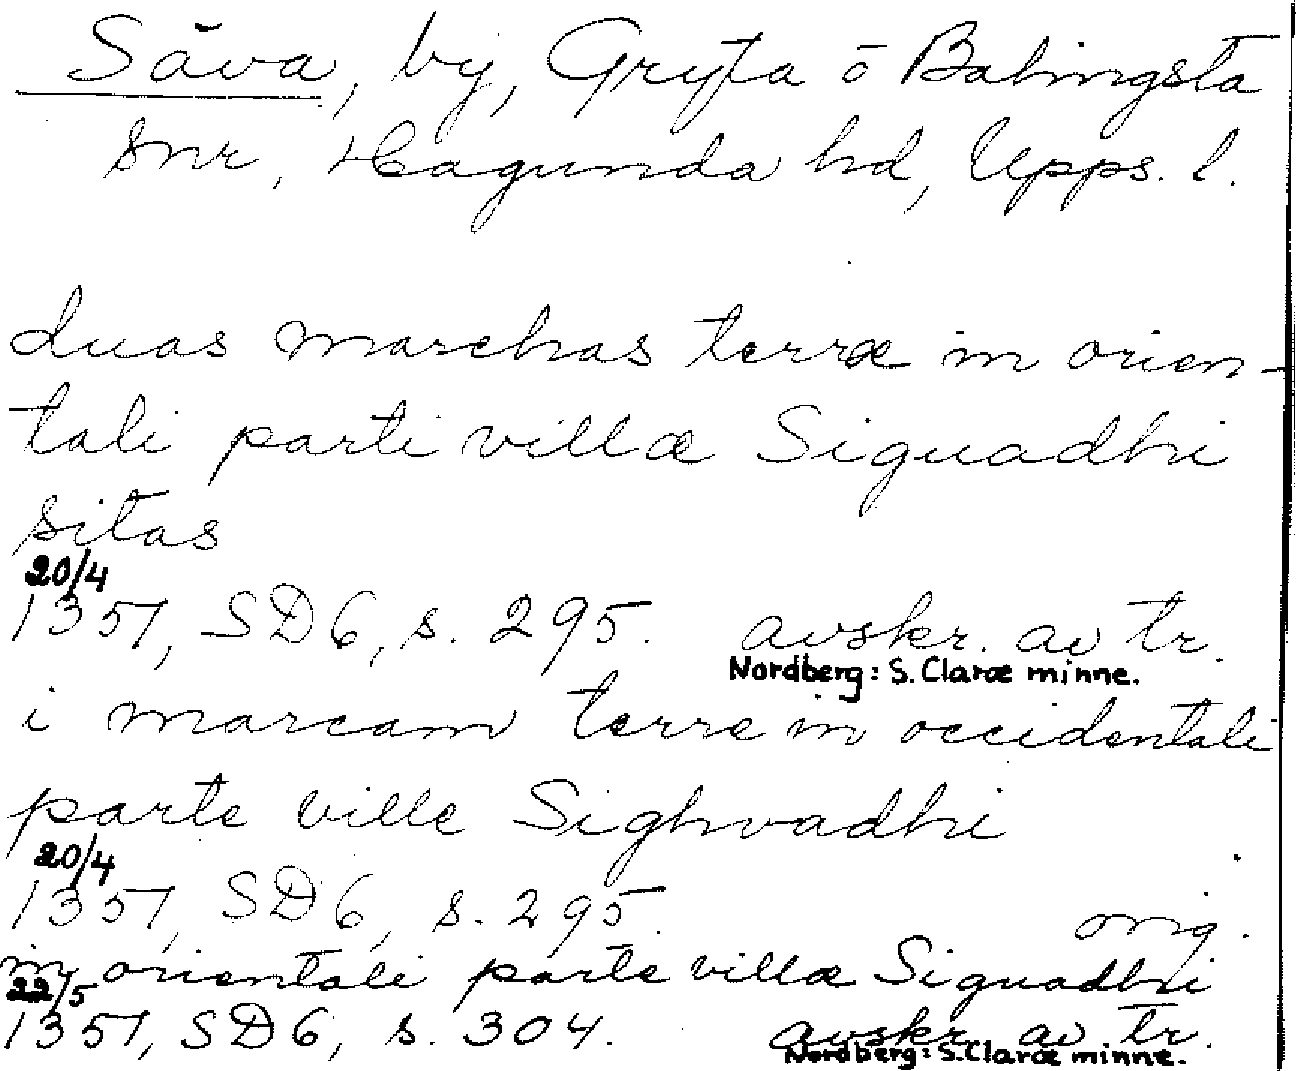 Såva, by, Gryta ō Balingsta
snr, Hagunda hd, Upps. l.
duas marchas terræ in orien-
tali parti villæ Siguadhi
sitas
20/4
1351, SD 6, s. 295. avskr. av tr.
Nordberg: S. Claræ minne.
i marcam terre in occidentali
parte ville Sighvadhi
20/4
1351, SD 6, s. 295 orig.
in orientali parte villæ Siguadhi
22/5
1351, SD 6, s. 304. avskr. av tr.
Nordberg: S. Claræ minne.